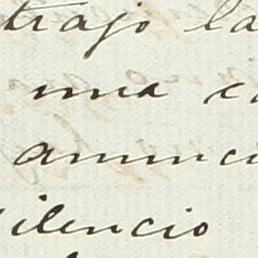 trajo la
una c
anunci
silencio